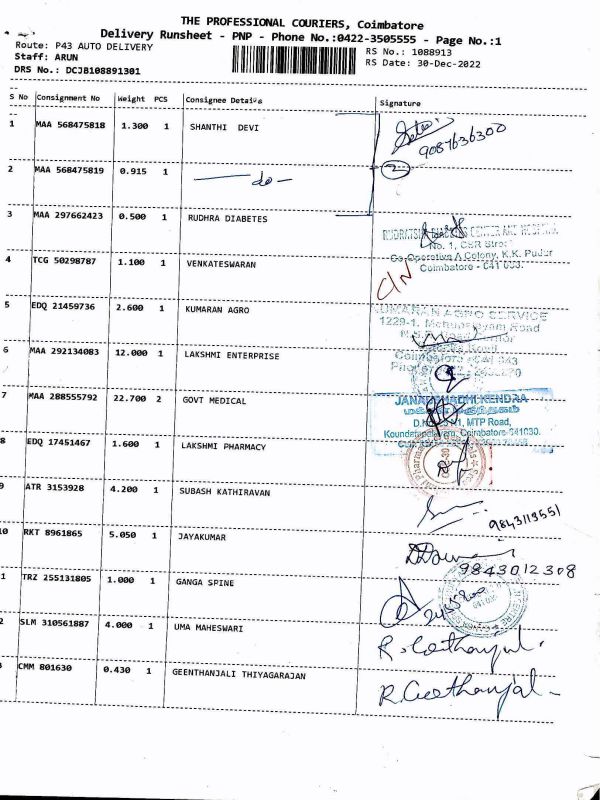 THE PROFESSIONAL COURIERS, Coimbatore
Delivery Runsheet - PNP - Phone No.:0422-3505555 - Page No.:1
Route: P43 AUTO DELIVERY
RS No.: 1088913
Staff: ARUN
RS Date: 30-Dec-2022
DRS No.: DCJB108891301
S No Consignment No Weight PCS Consignee Details Signature
1 MAA 568475818 1.300 1 SHANTHI DEVI
9087636300
2 MAA 568475819 0.915 1 — do — 2
3 MAA 297662423 0.500 1 RUDHRA DIABETES
No. 1, CSR Street
Co-Operative A Colony, K.K. Pudur
Coimbatore - 641 038.
4 TCG 50298787 1.100 1 VENKATESWARAN
C/N
5 EDQ 21459736 2.600 1 KUMARAN AGRO
KUMARAN AGRO SERVICE
6 MAA 292134083 12.000 1 LAKSHMI ENTERPRISE
7 MAA 288555792 22.700 2 GOVT MEDICAL
JANAUSHADHI KENDRA
MTP Road,
Coimbatore-641030.
8 EDQ 17451467 1.600 1 LAKSHMI PHARMACY
9 ATR 3153928 4.200 1 SUBASH KATHIRAVAN
9843119551
10 RKT 8961865 5.050 1 JAYAKUMAR
9843012308
1 TRZ 255131805 1.000 1 GANGA SPINE
2 SLM 310561887 4.000 1 UMA MAHESWARI
R. Geethanjal.
3 CMM 801630 0.430 1 GEENTHANJALI THIYAGARAJAN
R. Geethanjal